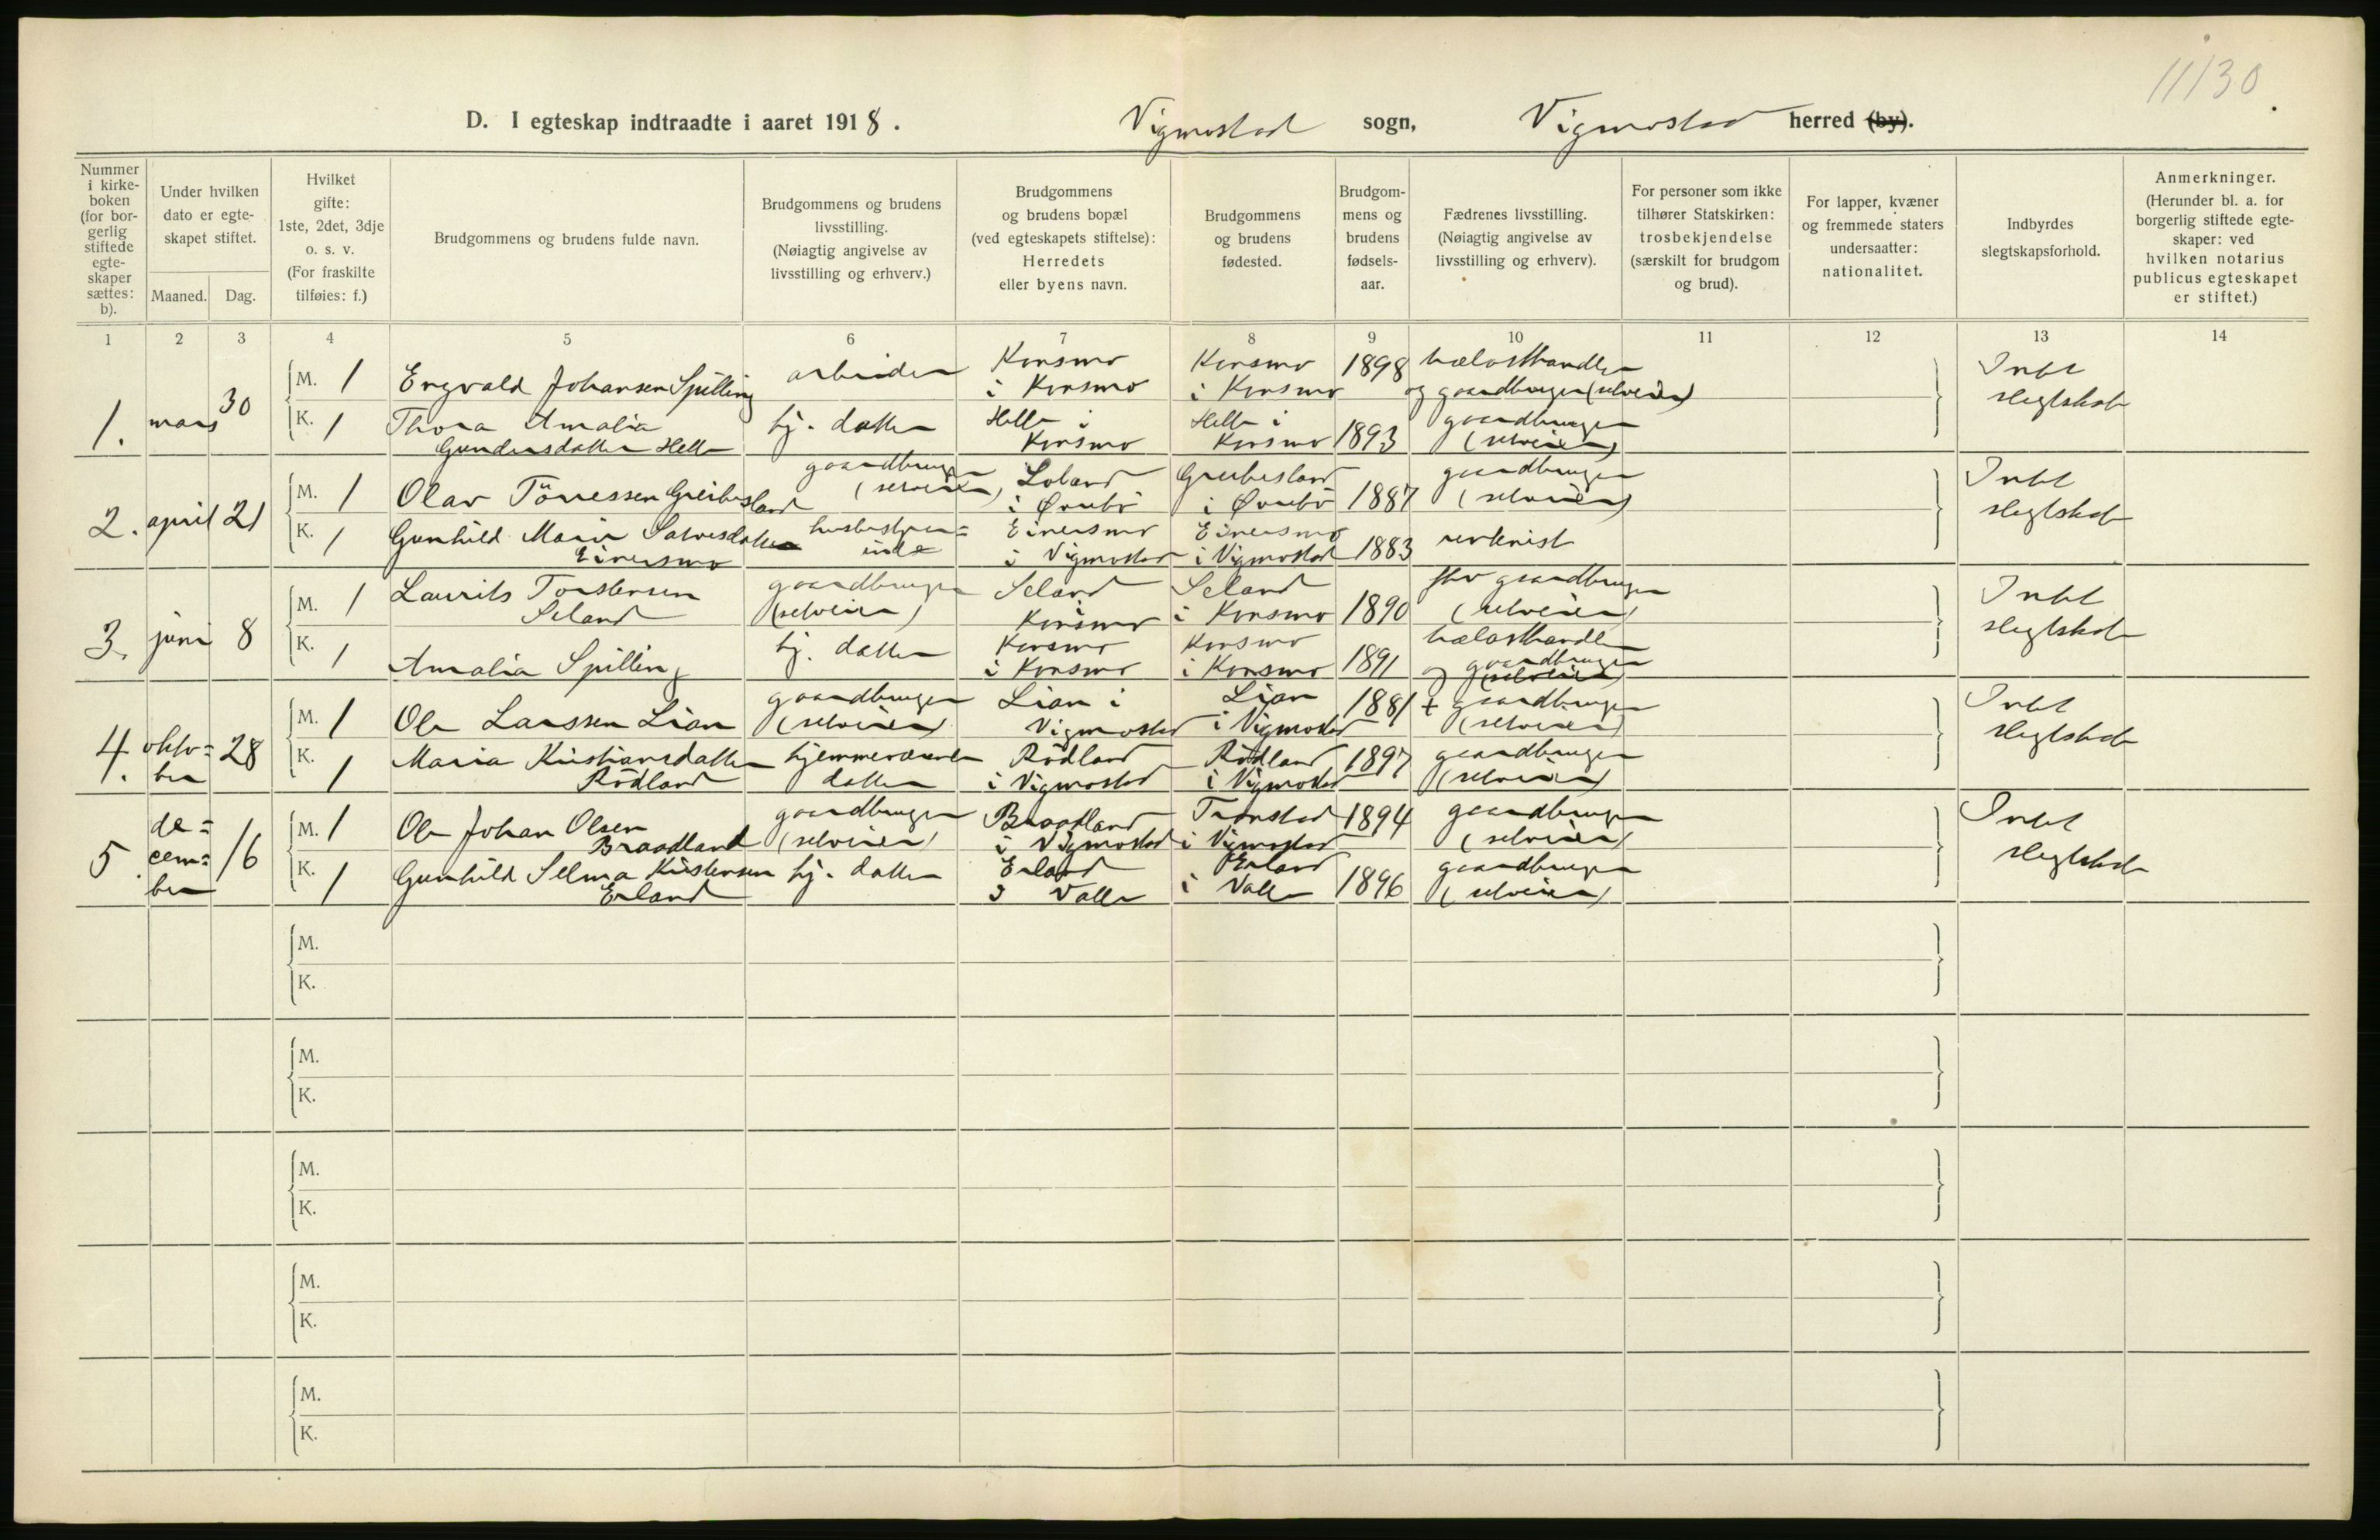 11130
D. I egteskap indtraadte i aaret 1918. Vigmostad sogn, Vigmostad herred (by).
Nummer i kirkeboken (for borgerlig stiftede egteskaper sættes: b).
Under hvilken dato er egteskapet stiftet.
Maaned. Dag.
Hvilket gifte: 1ste, 2det, 3dje o. s. v. (For fraskilte tilføies: f.)
Brudgommens og brudens fulde navn.
Brudgommens og brudens livsstilling. (Nøiagtig angivelse av livsstilling og erhverv.)
Brudgommens og brudens bopæl (ved egteskapets stiftelse): Herredets eller byens navn.
Brudgommens og brudens fødested.
Brudgommens og brudens fødselsaar.
Fædrenes livsstilling. (Nøiagtig angivelse av livsstilling og erhverv).
For personer som ikke tilhører Statskirken: trosbekjendelse (særskilt for brudgom og brud).
For lapper, kvæner og fremmede staters undersaatter: nationalitet.
Indbyrdes slegtskapsforhold.
Anmerkninger. (Herunder bl. a. for borgerlig stiftede egteskaper: ved hvilken notarius publicus egteskapet er stiftet.)
1 2 3 4 5 6 7 8 9 10 11 12 13 14
1. mars 30 M. 1 Engvald Johansen Spilling arbeider Konsmo i Konsmo Konsmo i Konsmo 1898 trælasthandler og gaardbruger (selveier) Intet slegtskab
K. 1 Thora Amalia Gundersdatter Helle hj. datter Helle i Konsmo Helle i Konsmo 1893 gaardbruger (selveier)
2. april 21 M. 1 Olav Tönnessen Greibesland gaardbruger (selveier) Loland i Øvrebö Greibesland i Øvrebö 1887 gaardbruger (selveier) Intet slegtskab
K. 1 Gunhild Marie Salvesdatter Einersmo husbestyrerinde Einersmo i Vigmostad Einersmo i Vigmostad 1883
3. juni 8 M. 1 Laurits Torstensen Seland gaardbruger (selveier) Seland Konsmo Seland i Konsmo 1890 gaardbruger (selveier) Intet slegtskab
K. 1 Amalia Spilling hj. datter Konsmo i Konsmo Konsmo i Konsmo 1891 trælasthandler og gaardbruger (selveier)
4. oktober 28 M. 1 Ole Larssen Lian gaardbruger (selveier) Lian i Vigmostad Lian i Vigmostad 1881 + gaardbruger (selveier) Intet slegtskab
K. 1 Maria Kristiansdatter Rödland hjemmeværende datter Rödland i Vigmostad Rödland i Vigmostad 1897 gaardbruger (selveier)
5. december 16 M. 1 Ole Johan Olsen Braadland gaardbruger (selveier) Braadland i Vigmostad Tronstad i Vigmostad 1894 gaardbruger (selveier) Intet slegtskab
K. 1 Gunhild Selma Kristensen Erland hj. datter Erland i Valle Erland i Valle 1896 gaardbruger (selveier)
M.
K.
M.
K.
M.
K.
M.
K.
M.
K.